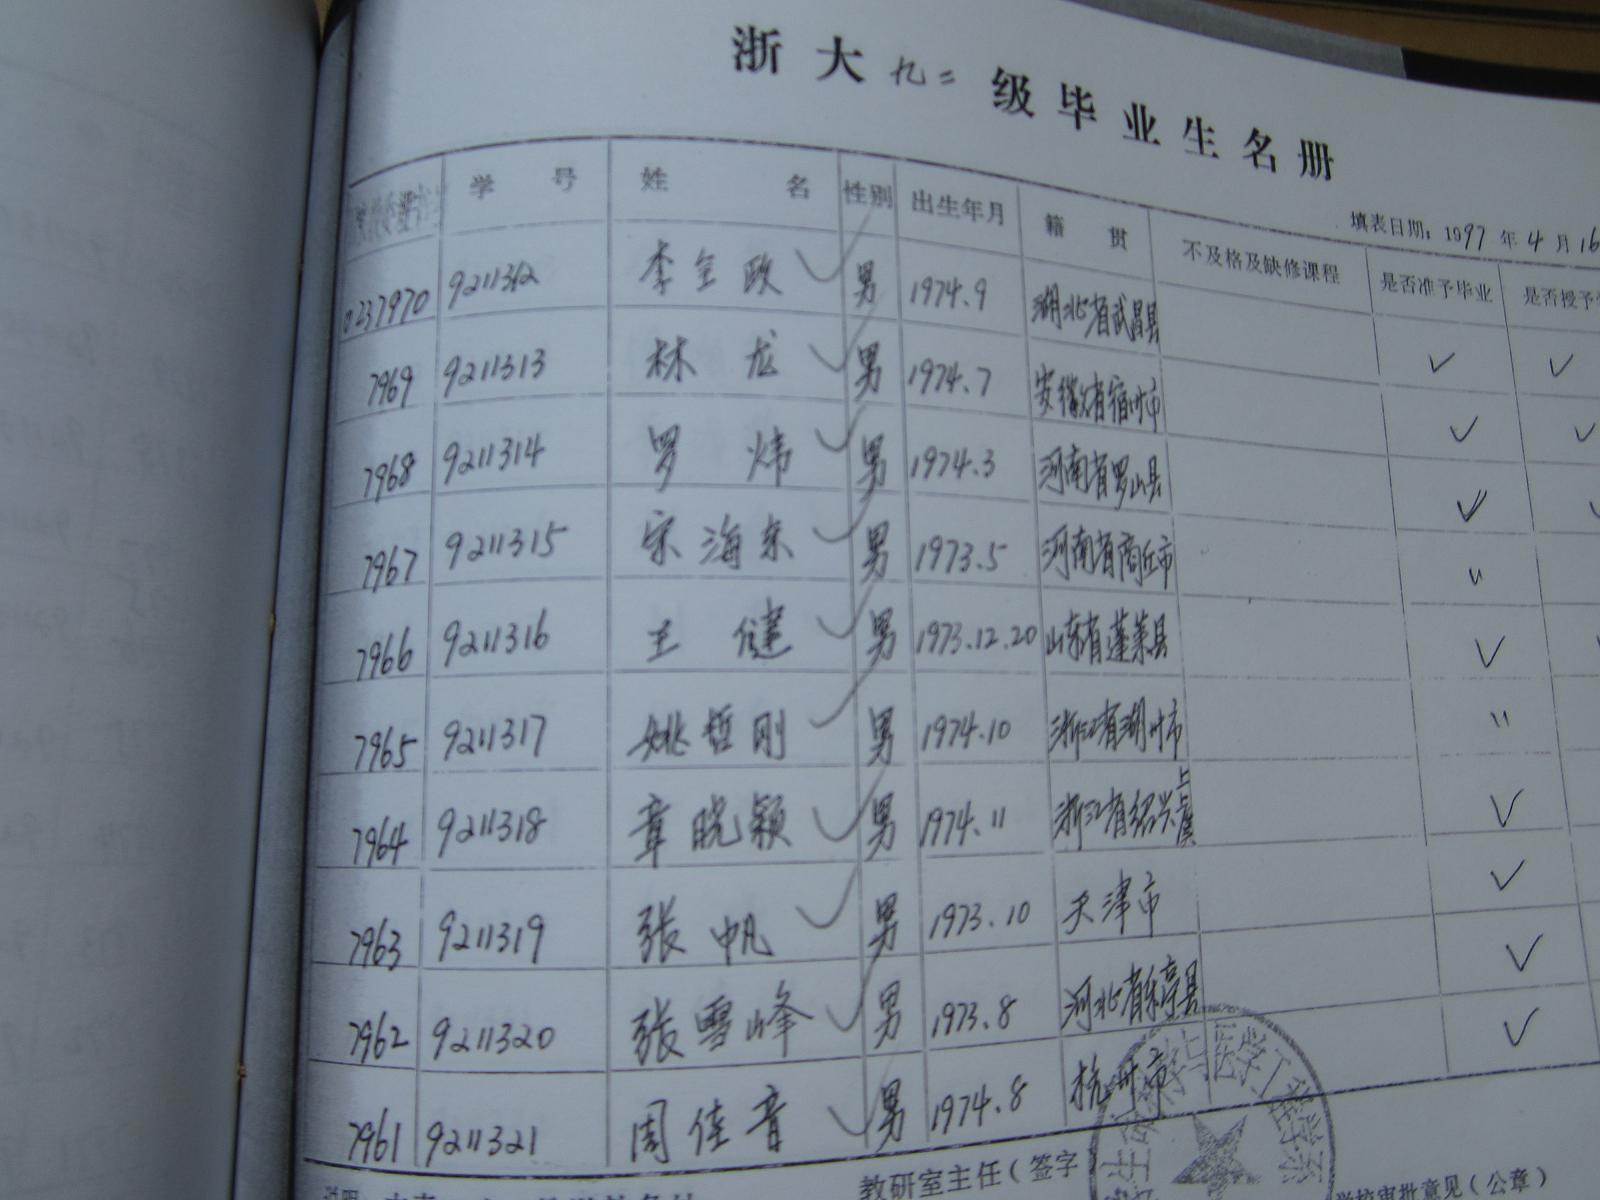 浙大九二级毕业生名册
填表日期：1997年4月16
学号 姓名 性别 出生年月 籍贯 不及格及缺修课程 是否准予毕业 是否授予
0237970 9211312 李全政 ✓ 男 1974.9 湖北省武昌县 ✓ ✓
7969 9211313 林龙 ✓ 男 1974.7 安徽省宿州市 ✓ ✓
7968 9211314 罗炜 ✓ 男 1974.3 河南省罗山县 ✓
7967 9211315 宋海东 ✓ 男 1973.5 河南省商丘市 〃
7966 9211316 王健 ✓ 男 1973.12.20 山东省蓬莱县 ✓
7965 9211317 姚哲刚 ✓ 男 1974.10 浙江省湖州市 〃
7964 9211318 章晓颖 ✓ 男 1974.11 浙江省绍兴上虞 ✓
7963 9211319 张帆 ✓ 男 1973.10 天津市 ✓
7962 9211320 张雪峰 ✓ 男 1973.8 河北省乐亭县 ✓
7961 9211321 周佳音 ✓ 男 1974.8 杭州市 ✓
教研室主任（签字
学校审批意见（公章）